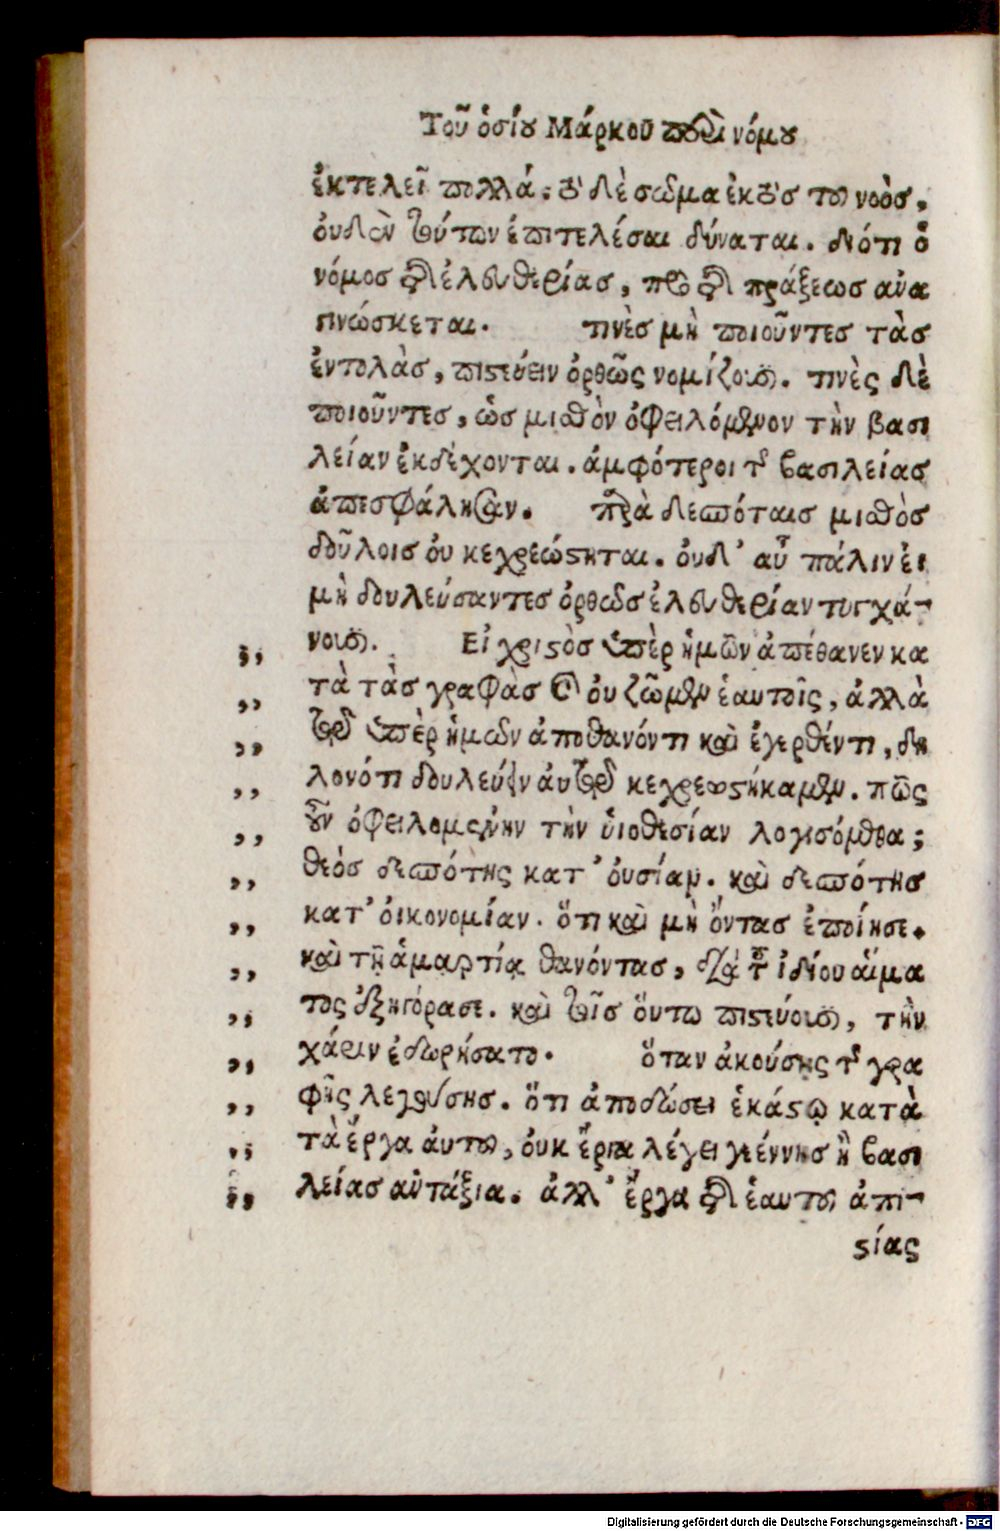 Τοῦ ὁσίου Μάρκου περὶ νόμου
ἐκτελεῖ πολλά. τὸ δὲ σῶμα ἐκτὸς τοῦ νοὸς,
οὐδὲν τούτων ἐπιτελέσαι δύναται. διότι ὁ
νόμος τῆς ἐλευθερίας, πρὸ τῆς πράξεως ἀνα
γινώσκεται. τινὲς μὴ ποιοῦντες τὰς
ἐντολὰς, πιστεύειν ὀρθῶς νομίζουσι. τινὲς δὲ
ποιοῦντες, ὡς μισθὸν ὀφειλόμενον τὴν βασι
λείαν ἐκδέχονται. ἀμφότεροι τῆς βασιλείας
ἀπεσφάλησαν. παρὰ δεσπόταις μισθὸς
δούλοις οὐ κεχρεώστηται. οὐδ' αὖ πάλιν εἰ
μὴ δουλεύσαντες ὀρθῶς ἐλευθερίαν τυγχά-
νουσι. Εἰ χριστὸς ὑπὲρ ἡμῶν ἀπέθανεν κα
τὰ τὰς γραφὰς καὶ οὐ ζῶμεν ἑαυτοῖς, ἀλλὰ
τῷ ὑπὲρ ἡμῶν ἀποθανόντι καὶ ἐγερθέντι, δη
λονότι δουλεύειν αὐτῷ κεχρεωστήκαμεν. πῶς
οὖν ὀφειλομένην τὴν υἱοθεσίαν λογισόμεθα;
θεὸς δεσπότης κατ' οὐσίαν. καὶ δεσπότης
κατ' οἰκονομίαν. ὅτι καὶ μὴ ὄντας ἐποίησε.
καὶ τῇ ἁμαρτίᾳ θανόντας, διὰ τοῦ ἰδίου αἵμα
τος ἐξηγόρασε. καὶ τοῖς οὕτω πιστεύουσι, τὴν
χάριν ἐδωρήσατο. ὅταν ἀκούσῃς τῆς γρα
φῆς λεγούσης. ὅτι ἀποδώσει ἑκάστῳ κατὰ
τὰ ἔργα αὐτοῦ, οὐκ ἔργα λέγει γεέννης ἢ βασι
λείας αὐτάξια. ἀλλ' ἔργα τῆς ἑαυτοῦ ἀπι-
στίας
Digitalisierung gefördert durch die Deutsche Forschungsgemeinschaft - DFG